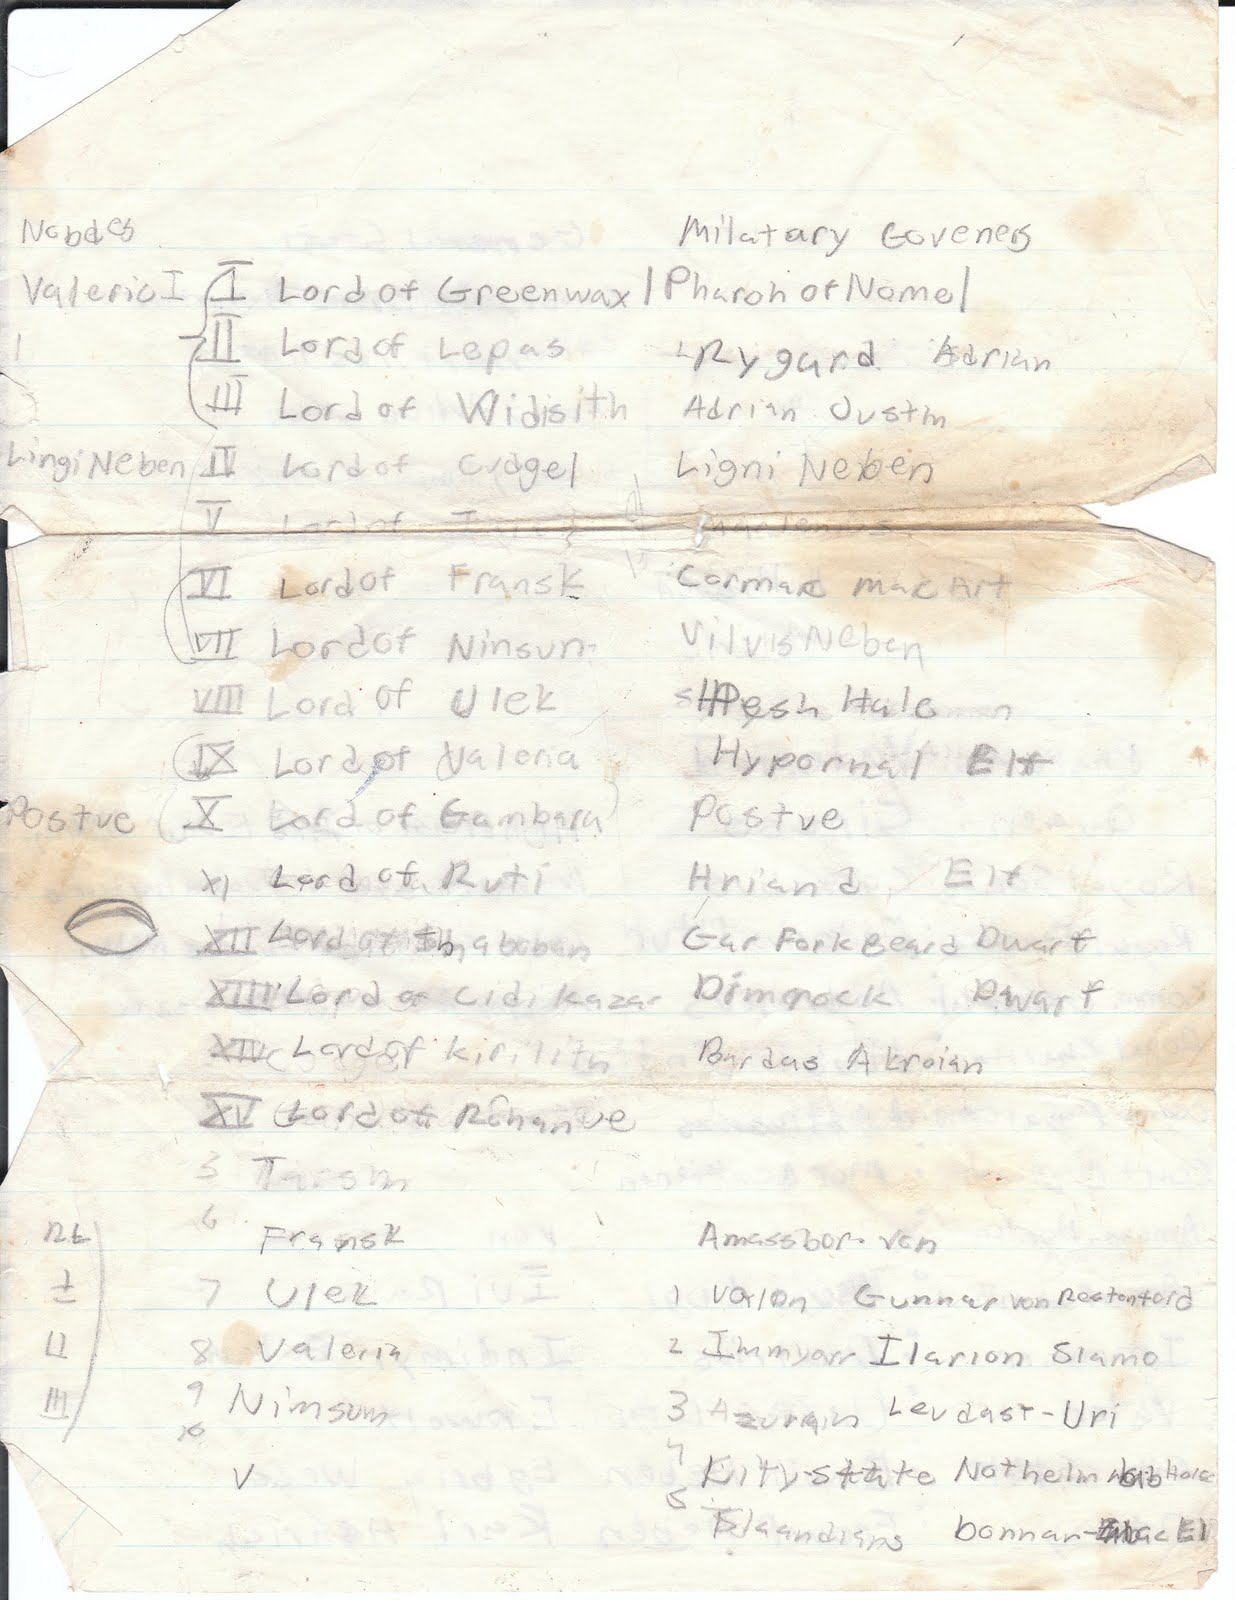 Nobdes Milatary Goveners
Valerio I I Lord of Greenwax | Pharoh of Nome |
II Lord of Lepas Rygard Adrian
III Lord of Widisith Adrian Justin
Lingi Neben IV Lord of Cudgel Ligni Neben
V Lord of
VI Lord of Fransk Cormac mac Art
VII Lord of Ninsun Vilvis Neben
VIII Lord of Ulek
IX Lord of Valeria Hypornal Elf
Postve X Lord of Gambara Postve
XI Lord of Ruti Hriand Elf
XII Lord of Gar Fork Beard Dwarf
XIII Lord of Cidikazar Dimrock Dwarf
XIV Lord of Kirilith Bardas Akroian
XV Lord of Rohanve
5 Tarsm
6 Fransk Amassbor von
I 7 Ulek 1 Valon Gunnar von Restenford
II 8 Valeria 2 Immyarr Ilarion Slamo
III 9 Nimsum 3 Azurain Levdast-Uri
10
V 4 City-state Nothelm
5 Islaandians bonnar